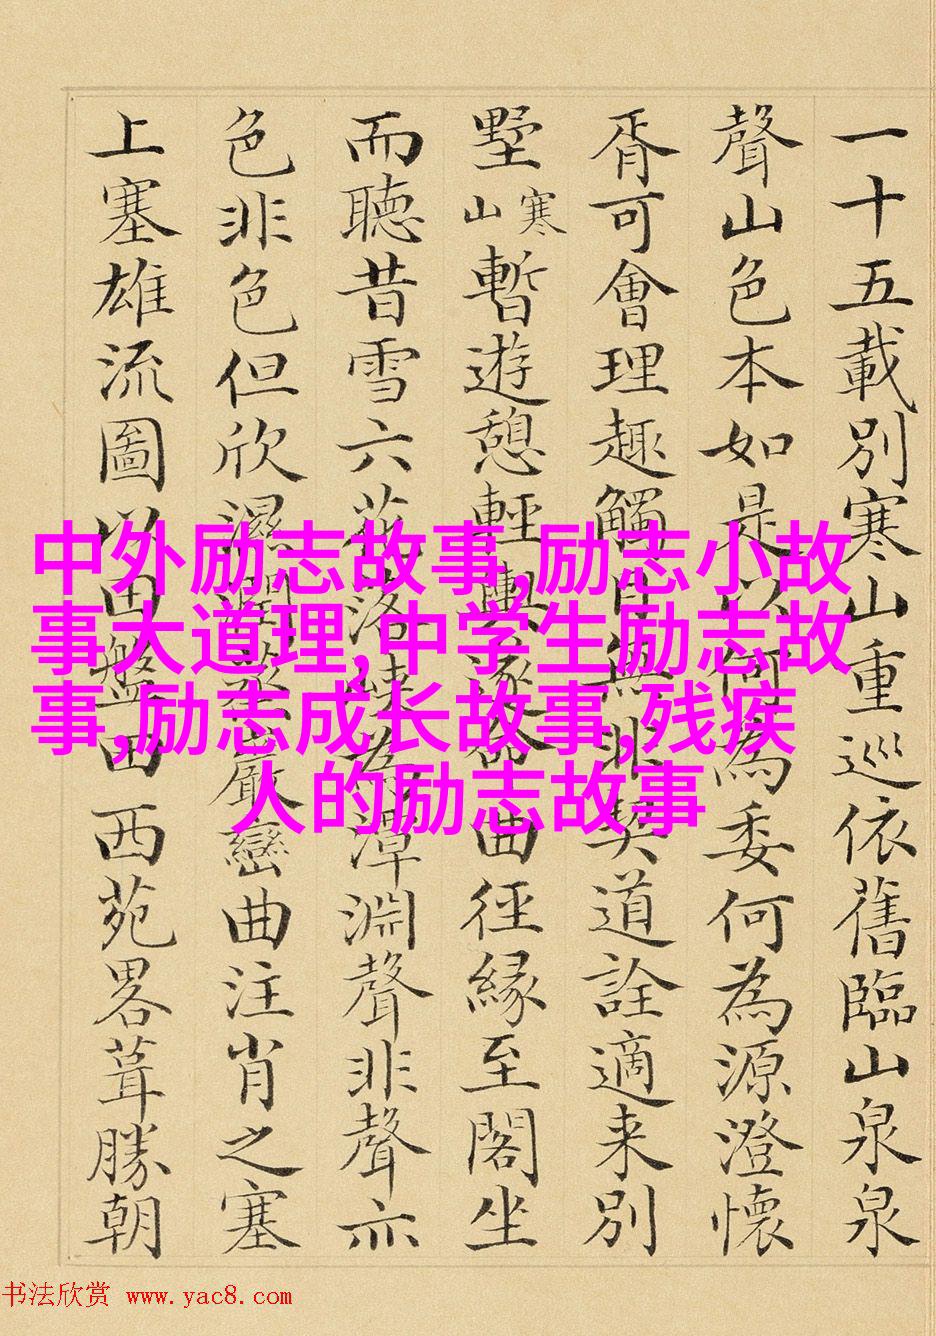 一十五載別寒山重巡依舊臨山泉泉
聲山色本如是以何為委何為源澄懷
胥可會理趣觸目無非契道詮適来別
墅寒山暫遊憩輕輿逐曲徑緣至閣坐
而聽昔雪六花落凍為潭淵聲非聲亦
色非色但欣濕潤蒸巖巒曲注肖之塞
上塞雄流圖以田盤田西苑畧葺勝朝
中外励志故事,励志小故
事大道理,中学生励志故
事,励志成长故事,残疾
人的励志故事
书法欣赏 www.yac8.com